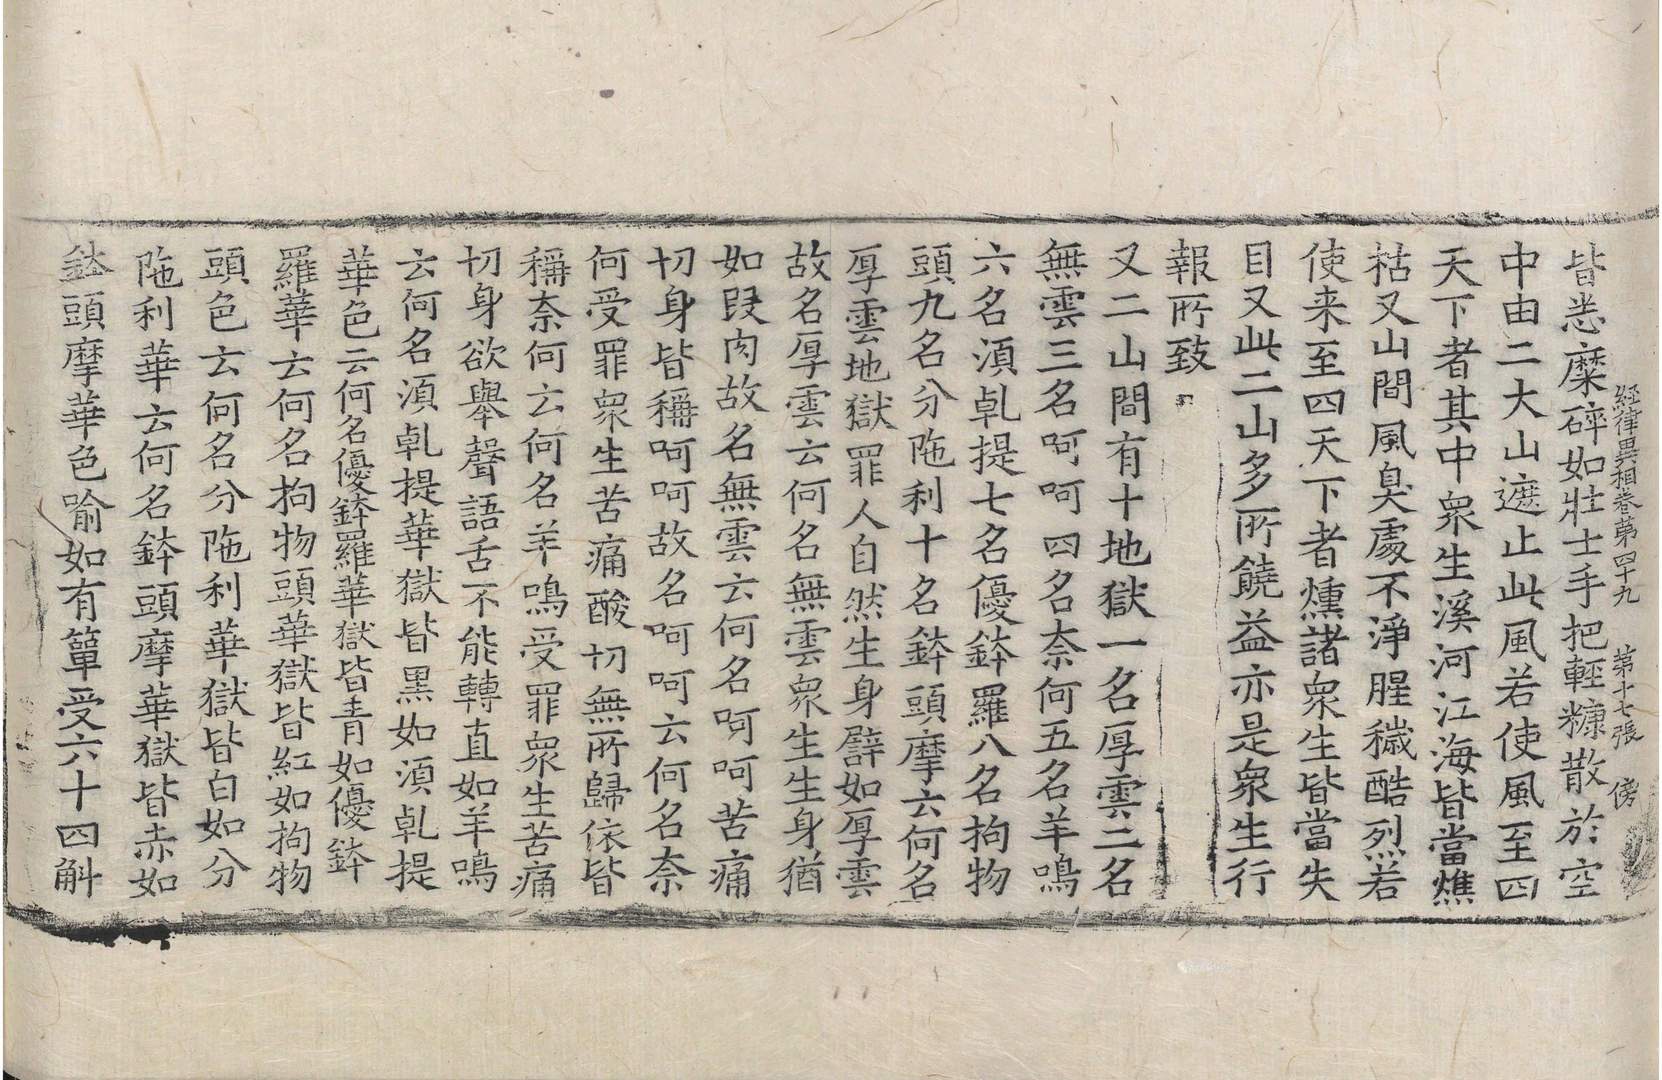 經律異相卷第四十九　第十七張　傍
皆悉糜碎如壯士手把輕糠散於空
中由二大山遮止此風若使風至四
天下者其中衆生溪河江海皆當燋
枯又山間風臭處不淨腥穢酷烈若
使来至四天下者燻諸衆生皆當失
目又此二山多所饒益亦是衆生行
報所致
又二山間有十地獄一名厚雲二名
無雲三名呵呵四名奈何五名羊鳴
六名湏乹提七名優鉢羅八名拘物
頭九名分陁利十名鉢頭摩云何名
厚雲地獄罪人自然生身譬如厚雲
故名厚雲云何名無雲衆生生身猶
如段肉故名無雲云何名呵呵苦痛
切身皆稱呵呵故名呵呵云何名奈
何受罪衆生苦痛酸切無所歸依皆
稱奈何云何名羊鳴受罪衆生苦痛
切身欲舉聲語舌不能轉直如羊鳴
云何名湏乹提華獄皆黒如湏乹提
華色云何名優鉢羅華獄皆青如優鉢
羅華云何名拘物頭華獄皆紅如拘物
頭色云何名分陁利華獄皆白如分
陁利華云何名鉢頭摩華獄皆赤如
鉢頭摩華色喻如有簞受六十四斛